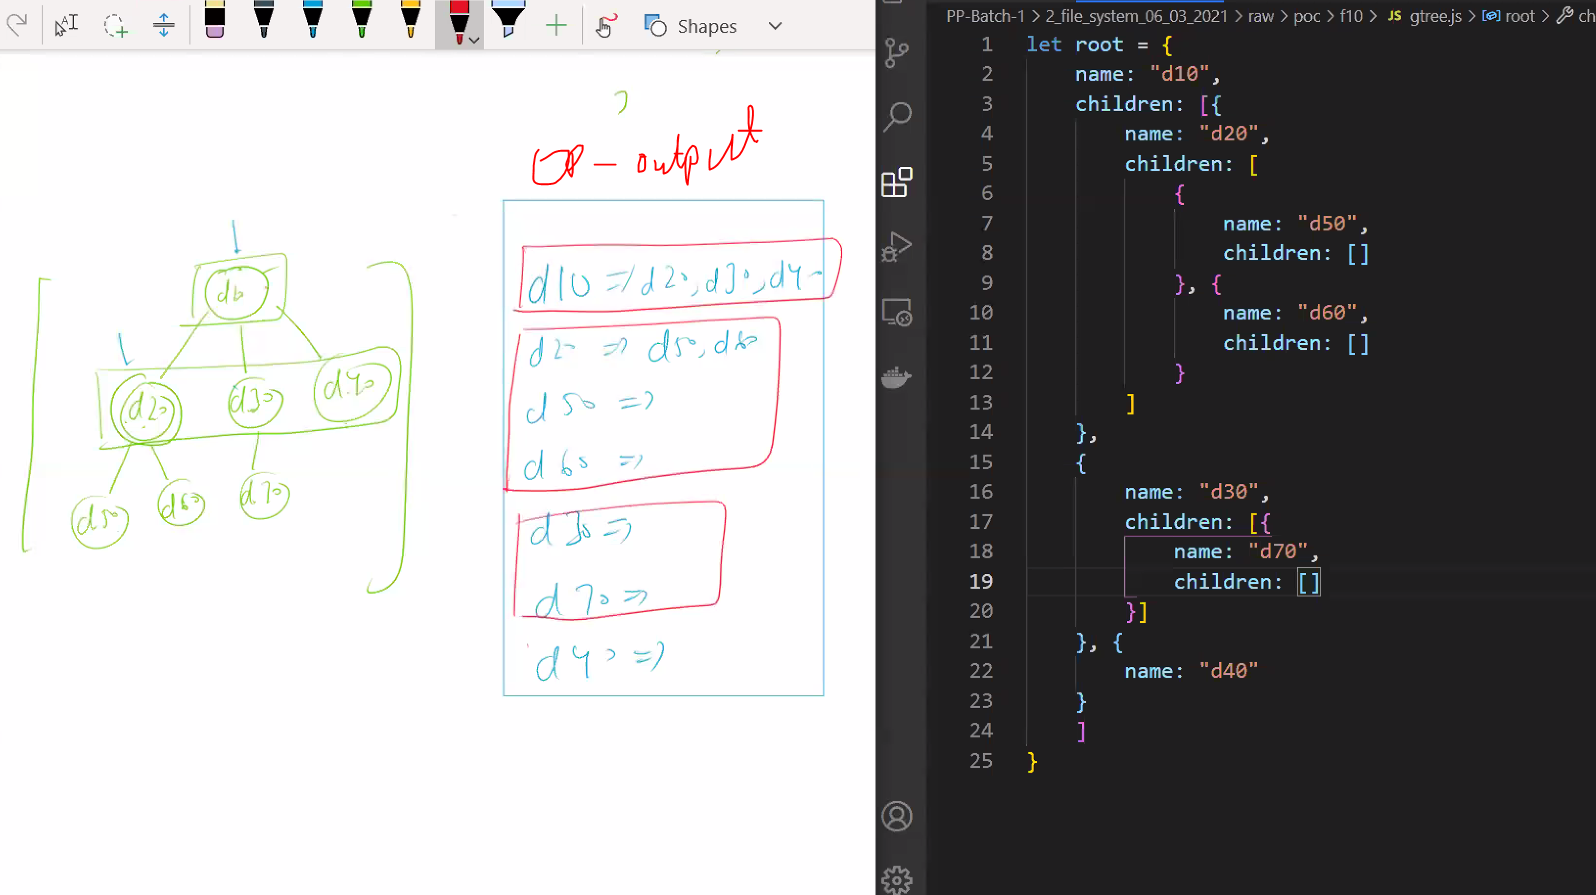 Shapes
OP - output
d10 => d20, d30, d40
d20 => d50, d60
d50 =>
d60 =>
d30 =>
d70 =>
d40 =>
d10
d20 d30 d40
d50 d60 d70
PP-Batch-1 > 2_file_system_06_03_2021 > raw > poc > f10 > JS gtree.js > root > ch
1 let root = {
2 name: "d10",
3 children: [{
4 name: "d20",
5 children: [
6 {
7 name: "d50",
8 children: []
9 }, {
10 name: "d60",
11 children: []
12 }
13 ]
14 },
15 {
16 name: "d30",
17 children: [{
18 name: "d70",
19 children: []
20 }]
21 }, {
22 name: "d40"
23 }
24 ]
25 }